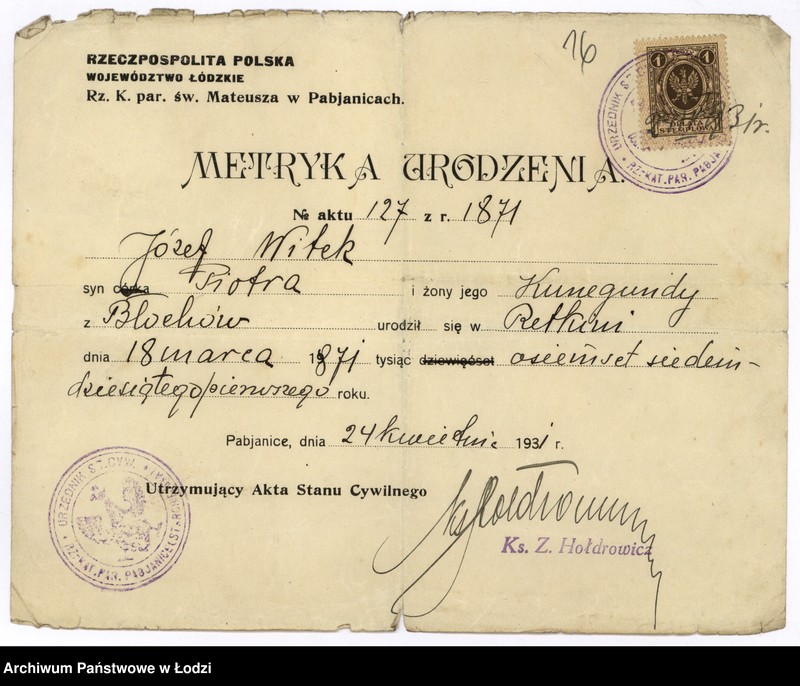 16
RZECZPOSPOLITA POLSKA
WOJEWÓDZTWO ŁÓDZKIE
Rz. K. par. św. Mateusza w Pabjanicach.
1 1
OPŁATA
STEMPLOWA
31 r.
URZĘDNIK ST. CYW.
RZ-KAT. PAR. PABJA
METRYKA URODZENIA.
№ aktu 127 z r. 1871
Józef Witek
syn córka Piotra i żony jego Kunegundy
z Błochów urodził się w Retkini
dnia 18 marca 1871 tysiąc dziewięćset osiemset siedem-
dziesiątego pierwszego roku.
Pabjanice, dnia 24 kwietnia 1931 r.
Utrzymujący Akta Stanu Cywilnego
Ks. Z. Hołdrowicz
URZĘDNIK ST. CYW.
RZ-KAT. PAR. PABJANICE
Archiwum Państwowe w Łodzi